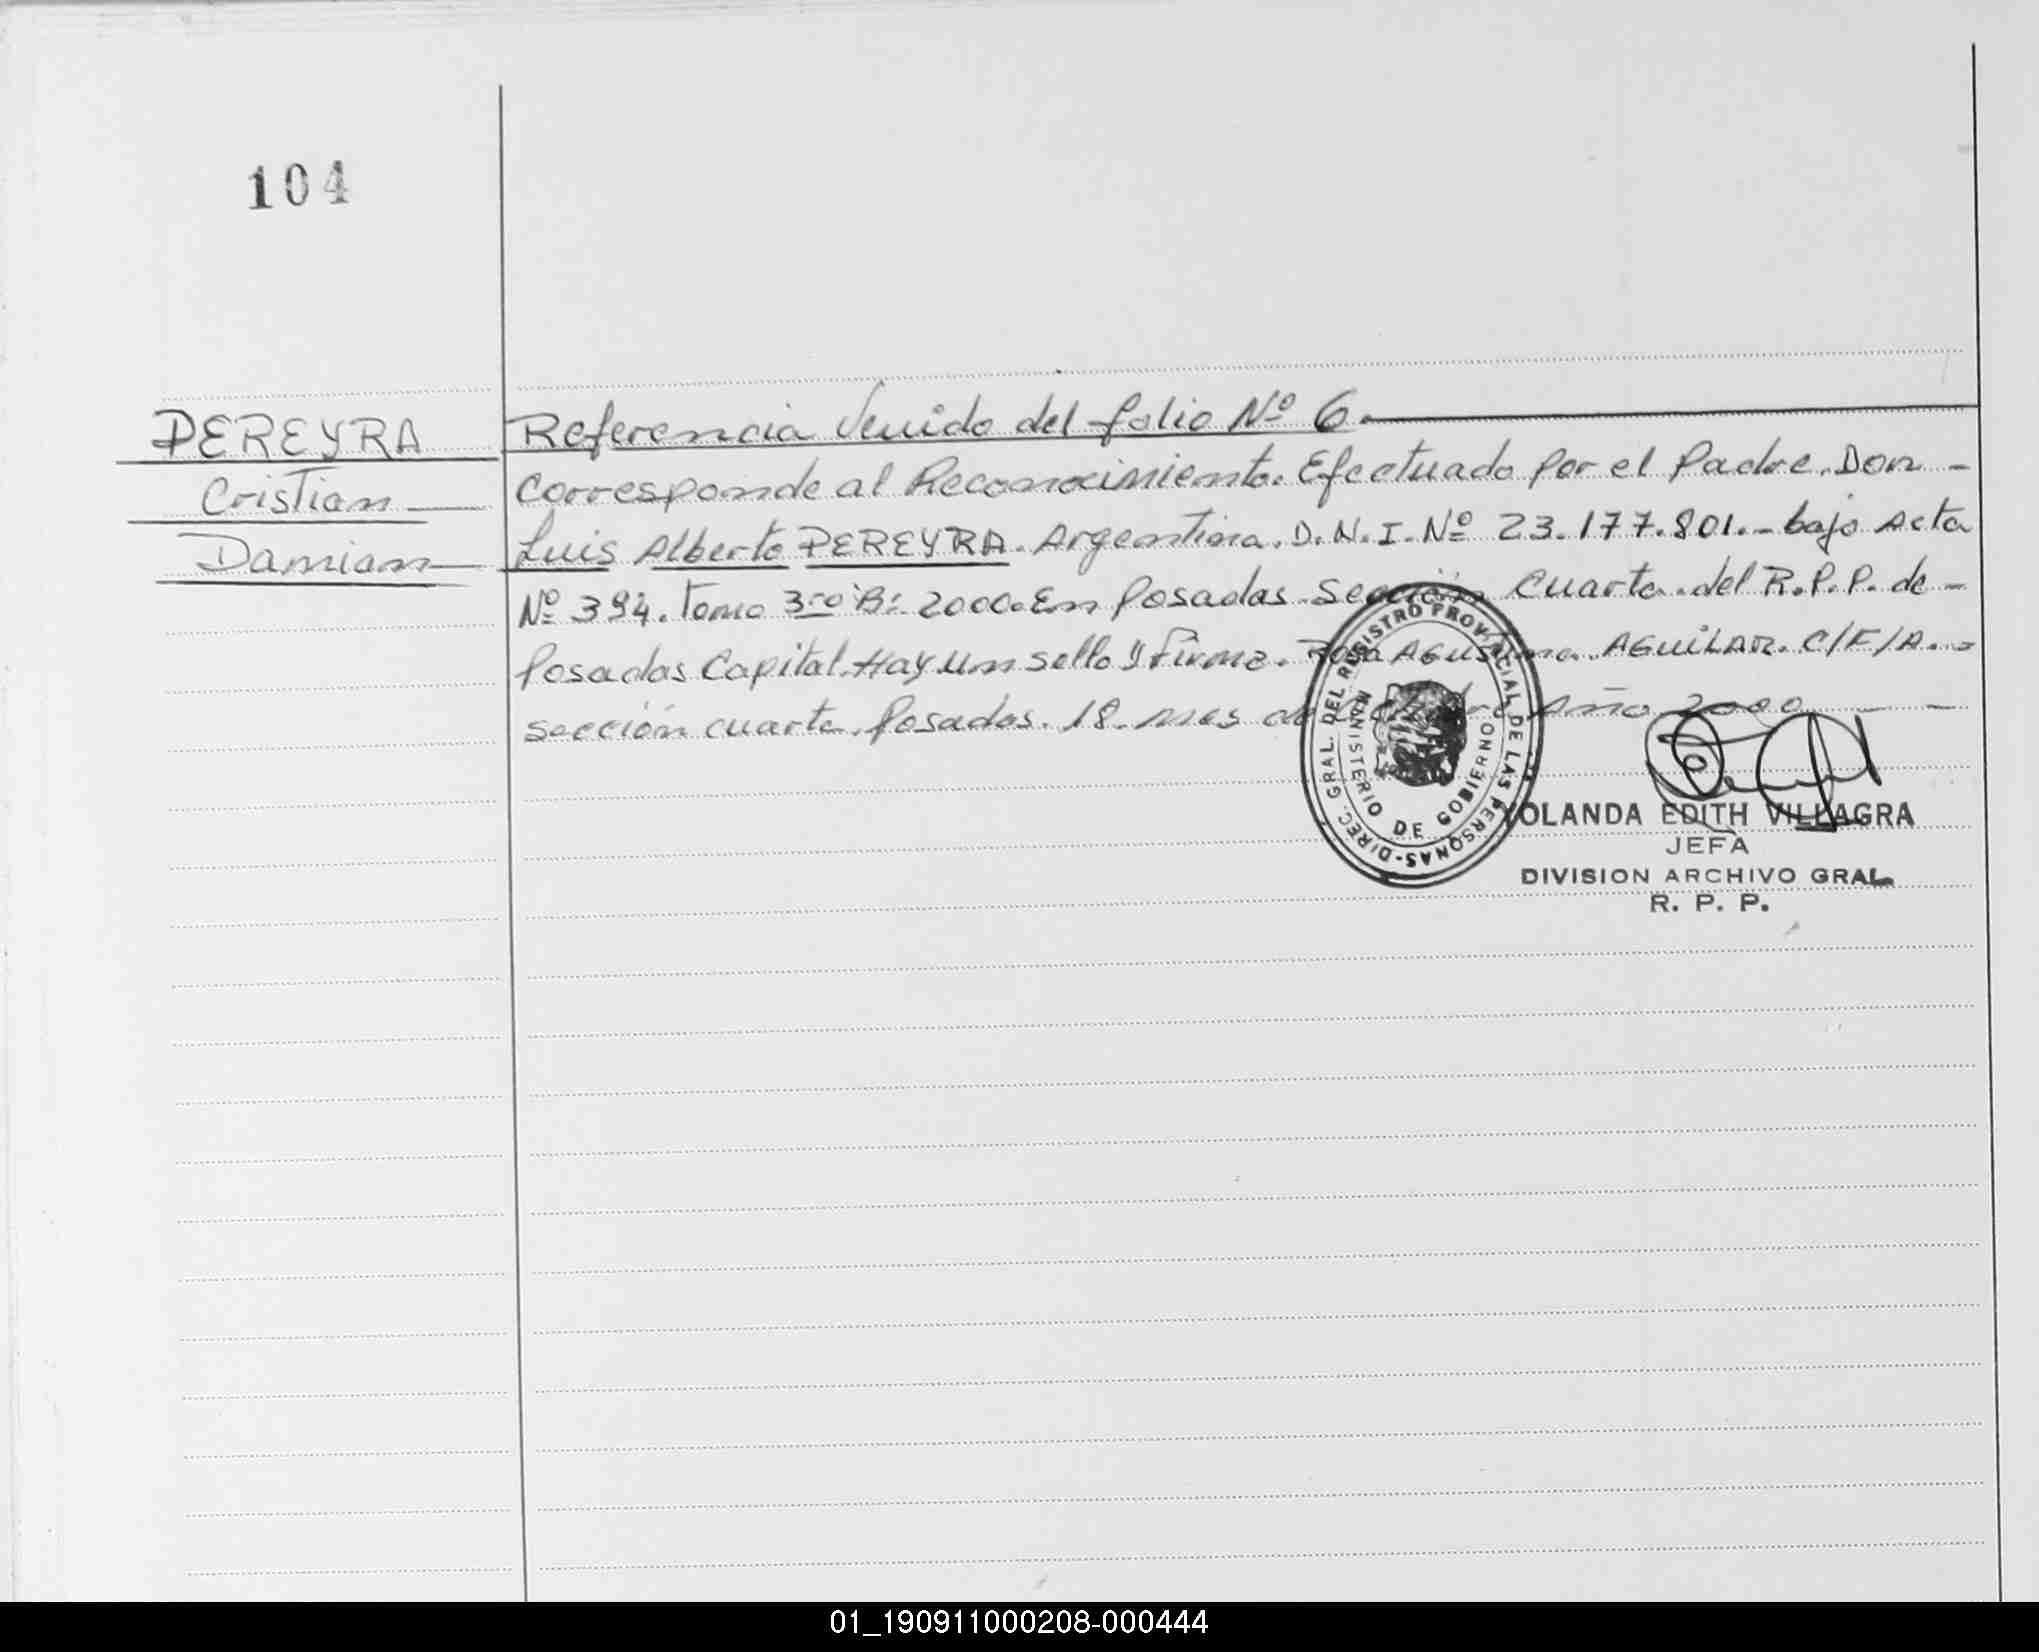 104
PEREYRA
Cristian
Damian
Referencia Venido del folio Nº 6.
Corresponde al Reconocimiento. Efectuado por el Padre. Don -
Luis Alberto PEREYRA. Argentina. D.N.I. Nº 23.177.801.- bajo Acta
Nº 394. Tomo 3ro B: 2000. En Posadas Sección Cuarta. del R.P.P. de -
Posadas Capital. Hay un sello y firma. Rosa Agustina AGUILAR. C/F/A. -
sección cuarta. Posadas. 18. mes de Año 2000 - -
DIREC. GRAL. DEL REGISTRO PROVINCIAL DE LAS PERSONAS-
MINISTERIO DE GOBIERNO
YOLANDA EDITH VILLAGRA
JEFA
DIVISION ARCHIVO GRAL.
R. P. P.
01_190911000208-000444